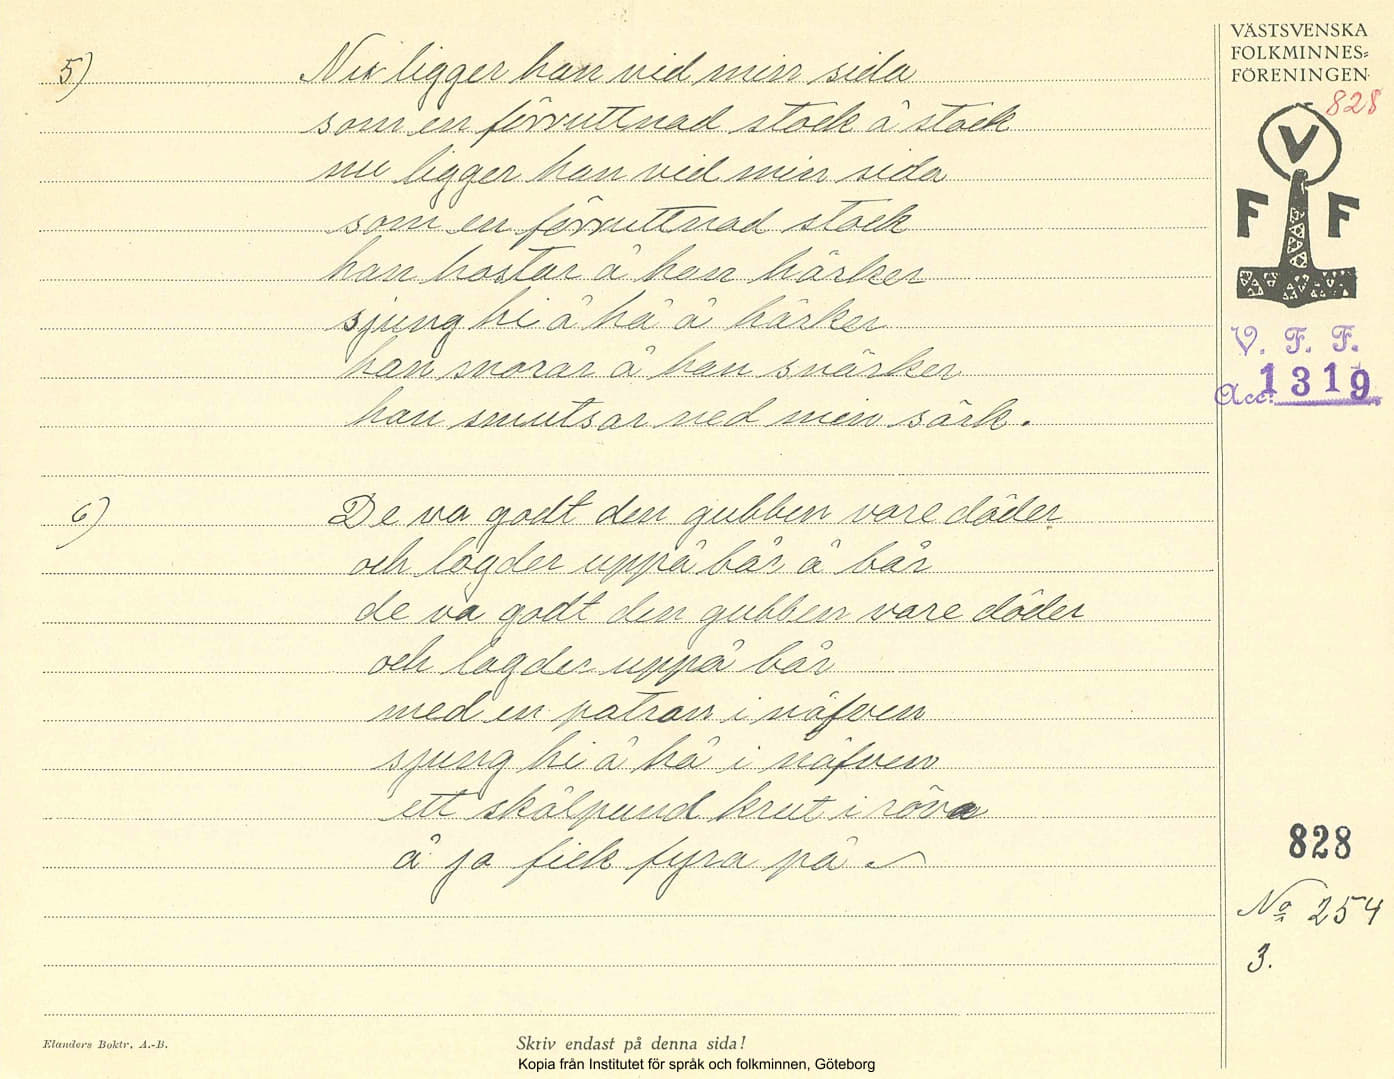 VÄSTSVENSKA
FOLKMINNES=
FÖRENINGEN
828
V
F F
V. F. F.
Acc: 1319
5) Nu ligger han vid min sida
som en förruttnad stock å stock
nu ligger han vid min sida
som en förruttnad stock
han hostar å han härker
sjung hi å hå å härker
han snorar å han snärker
han smutsar ned min särk.
6) De va godt den gubben vore döder
och lagder uppå bår å bår
de va godt den gubben vore döder
och lagder uppå bår
med en patron i näfven
sjung hi å hå i näfven
ett skålpund krut i röva
å ja fick fyra på
828
No 254
3.
Elanders Boktr. A.-B.
Skriv endast på denna sida!
Kopia från Institutet för språk och folkminnen, Göteborg